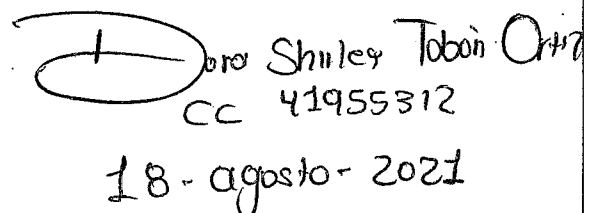 Dora Shirley Tobón Ortiz
CC 41955312
18-agosto-2021